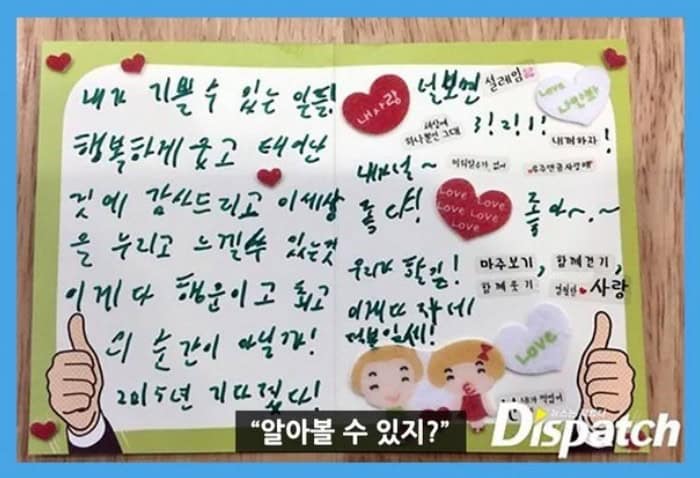 내가 기쁠 수 있는 일들!
행복하게 웃고 태어난
것에 감사드리고 이세상
을 누리고 느낄수 있는것
이게 다 행운이고 최고
의 순간이 아닐까!
2015년 기다렸다!
내사랑
널보면 설레임
Love
나만봐
세상에
하나뿐인 그대
3! 2! 1!
내꺼하자!
내가널~
미워할수가 없어
우주만큼사랑해
좋다!
Love Love
Love Love
Love
좋아~.~
우리가 할일!
마주보기,
함께걷기,
함께웃기
영원한
사랑
이게다 자세
덕분일세!
Love
“알아볼 수 있지?”
Dispatch